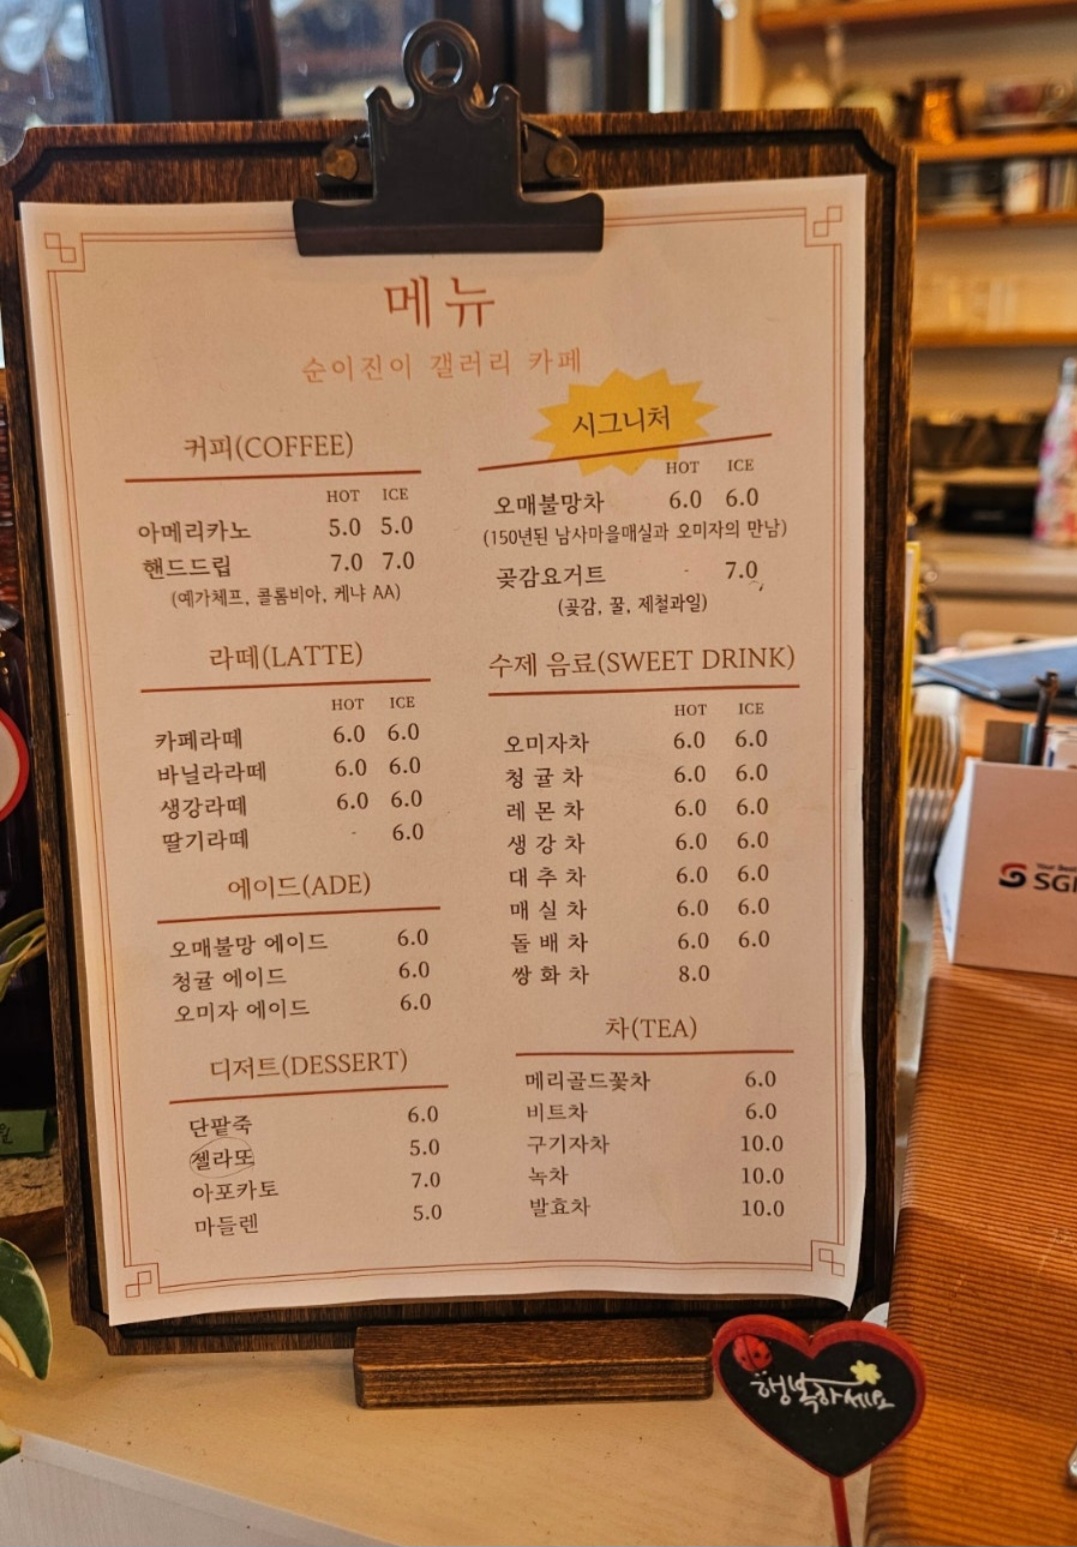 메뉴
순이진이 갤러리 카페
커피(COFFEE)
HOT ICE
아메리카노 5.0 5.0
핸드드립 7.0 7.0
(예가체프, 콜롬비아, 케냐 AA)
라떼(LATTE)
HOT ICE
카페라떼 6.0 6.0
바닐라라떼 6.0 6.0
생강라떼 6.0 6.0
딸기라떼 - 6.0
에이드(ADE)
오매불망 에이드 6.0
청귤 에이드 6.0
오미자 에이드 6.0
디저트(DESSERT)
단팥죽 6.0
젤라또 5.0
아포카토 7.0
마들렌 5.0
시그니처
HOT ICE
오매불망차 6.0 6.0
(150년된 남사마을매실과 오미자의 만남)
곶감요거트 - 7.0
(곶감, 꿀, 제철과일)
수제 음료(SWEET DRINK)
HOT ICE
오미자차 6.0 6.0
청귤차 6.0 6.0
레몬차 6.0 6.0
생강차 6.0 6.0
대추차 6.0 6.0
매실차 6.0 6.0
돌배차 6.0 6.0
쌍화차 8.0
차(TEA)
메리골드꽃차 6.0
비트차 6.0
구기자차 10.0
녹차 10.0
발효차 10.0
행복하세요